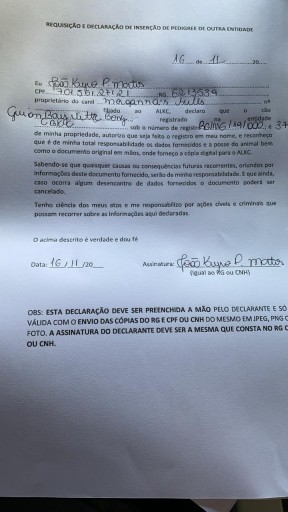 REQUISIÇÃO E DECLARAÇÃO DE INSERÇÃO DE PEDIGREE DE OUTRA ENTIDADE
16 de 11 20
Eu João P. matos
CPF RG
proprietário do canil nº
filiado ao ALKC, declaro que o cão
registrado na entidade
sob o numero de registro
de minha propriedade, autorizo que seja feito o registro em meu nome, e reconheço
que é de minha total responsabilidade os dados fornecidos e a posse do animal bem
como o documento original em mãos, onde forneço a cópia digital para o ALKC.
Sabendo-se que quaisquer causas ou consequências futuras recorrentes, oriundos por
informações deste documento fornecido, serão de minha responsabilidade. E que ainda,
caso ocorra algum desencontro de dados fornecidos o documento poderá ser
cancelado.
Tenho ciência dos meus atos e me responsabilizo por ações cíveis e criminais que
possam recorrer sobre as informações aqui declaradas.
O acima descrito é verdade e dou fé
Data: 16 / 11 /20 Assinatura: João P. matos
(igual ao RG ou CNH)
OBS: ESTA DECLARAÇÃO DEVE SER PREENCHIDA A MÃO PELO DECLARANTE E SÓ
VÁLIDA COM O ENVIO DAS CÓPIAS DO RG E CPF OU CNH DO MESMO EM JPEG, PNG
FOTO. A ASSINATURA DO DECLARANTE DEVE SER A MESMA QUE CONSTA NO RG
OU CNH.